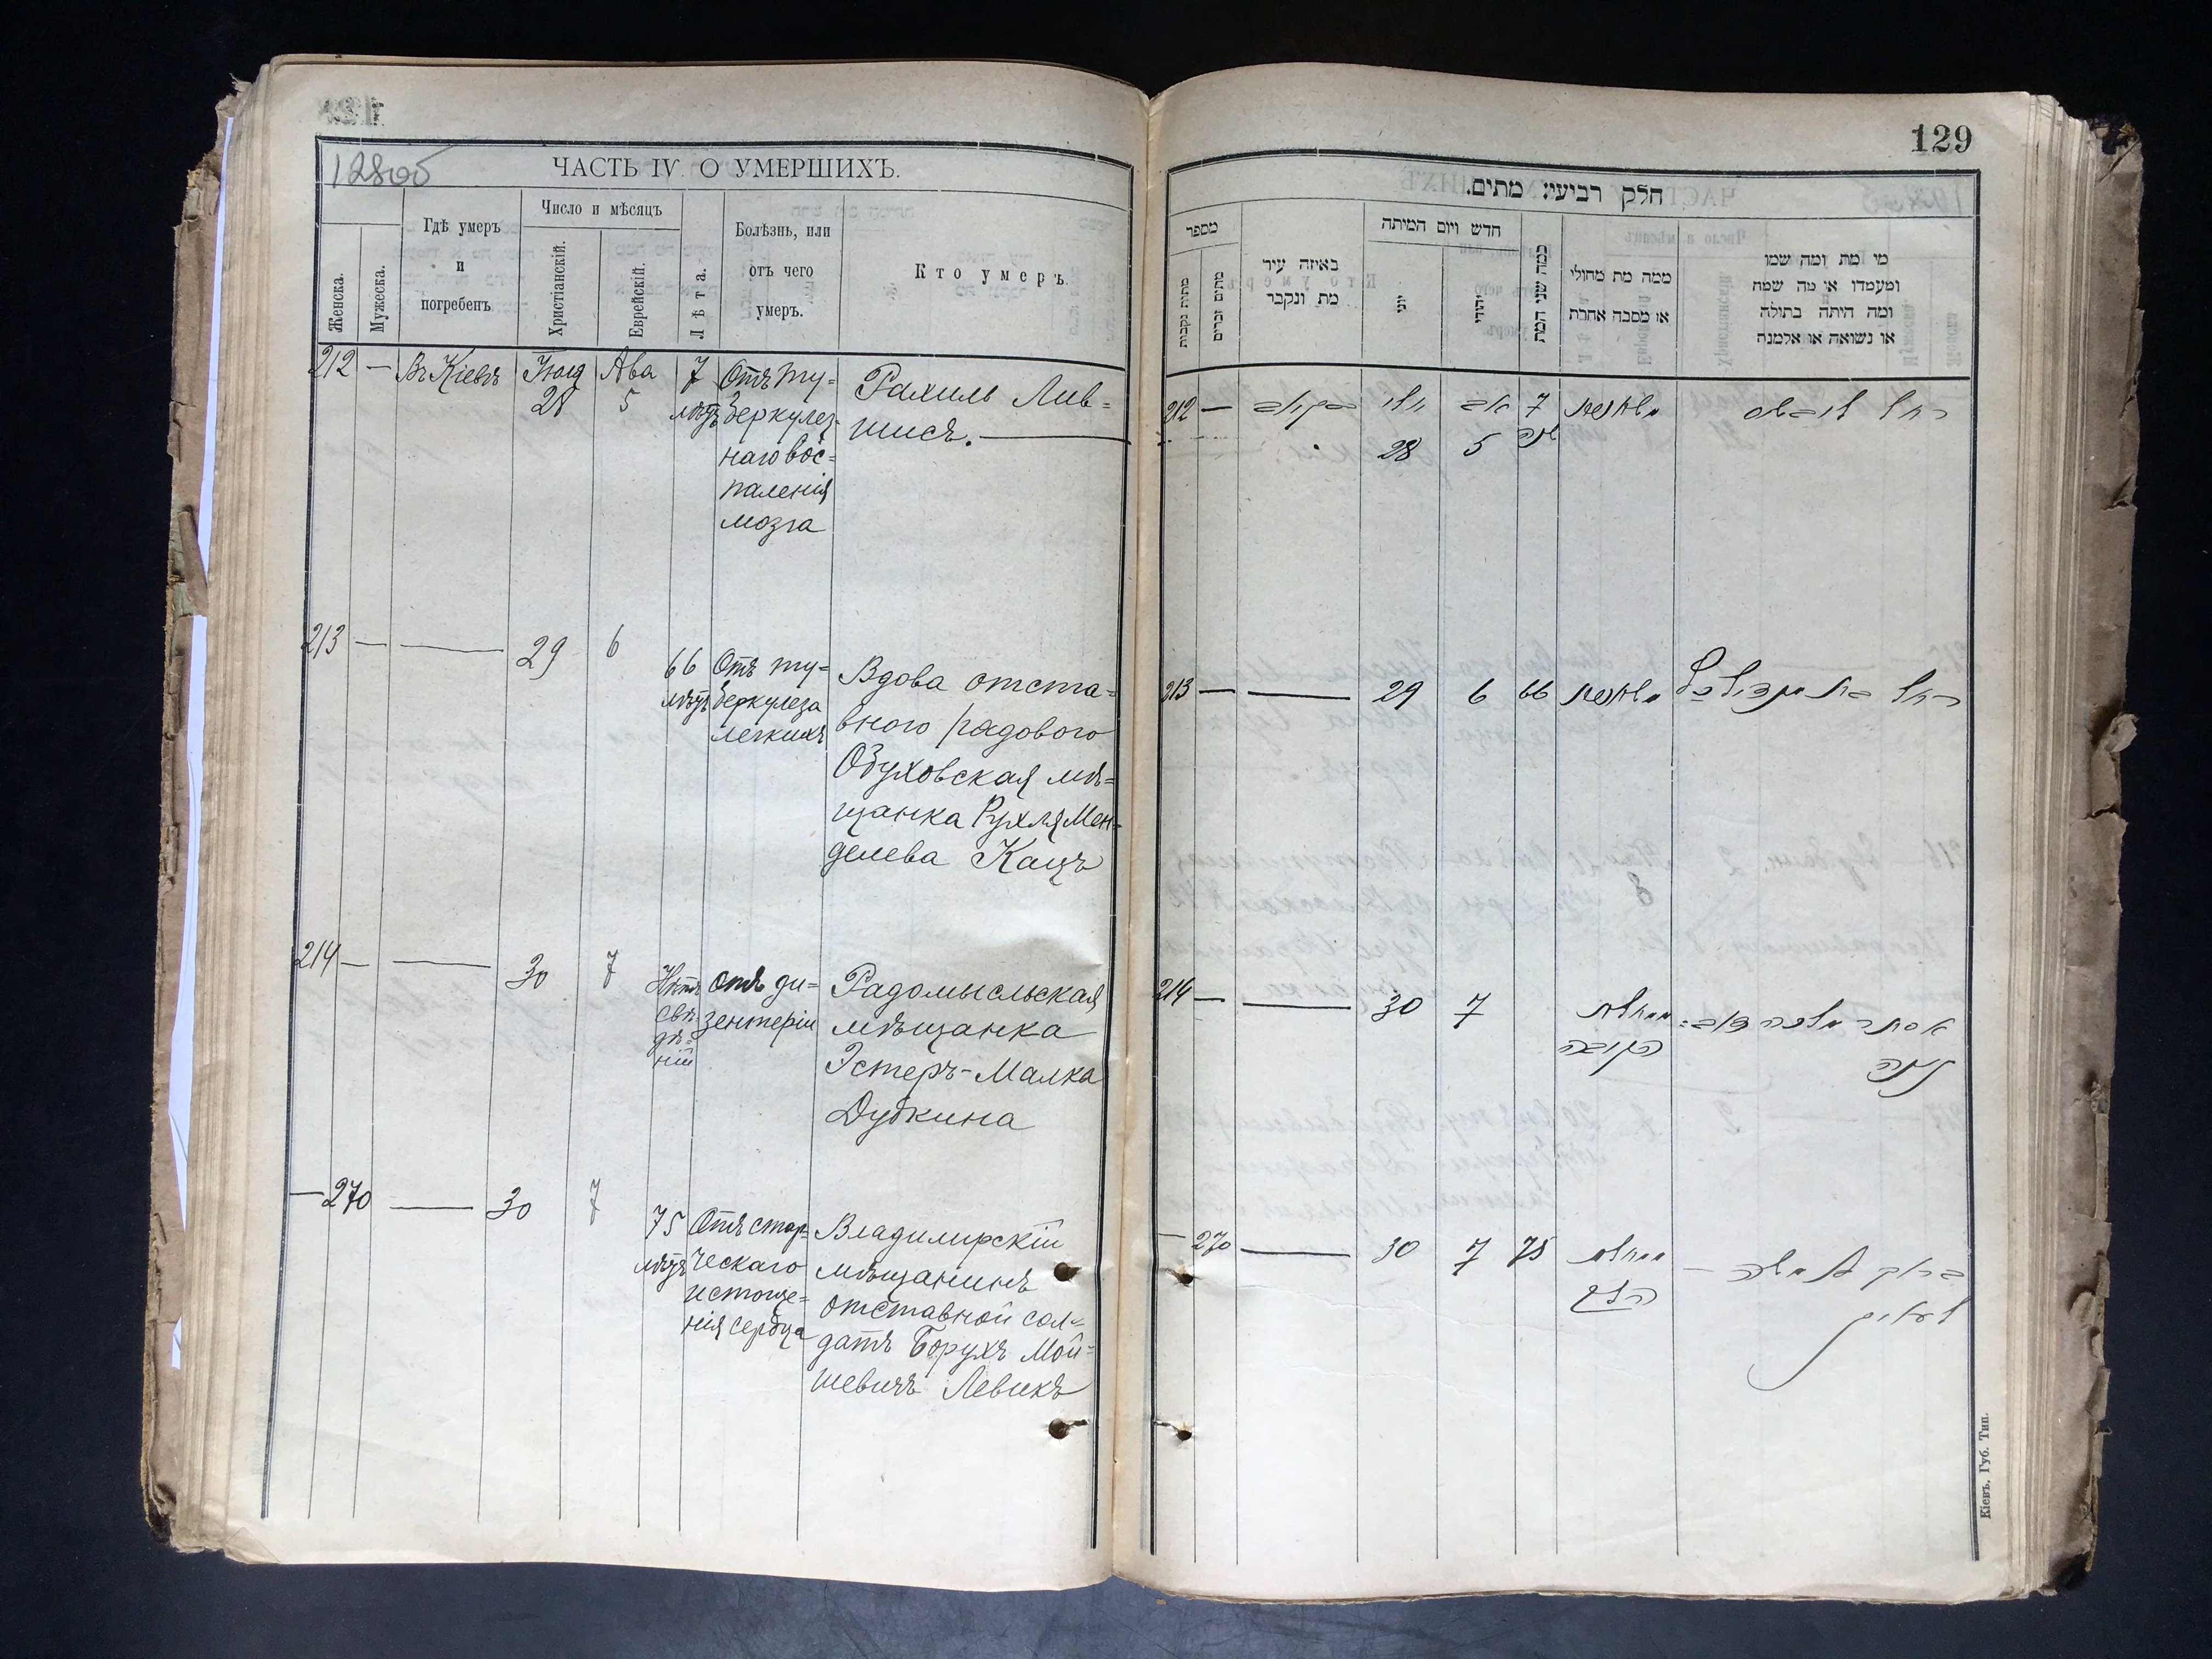 128об
ЧАСТЬ IV. О УМЕРШИХЪ.
Женска.
Мужеска.
Гдѣ умеръ
и
погребенъ
Число и мѣсяцъ
Христіанскій.
Еврейскій.
Лѣта.
Болѣзнь, или
отъ чего
умеръ.
Кто умеръ.
212 — Въ Кіевѣ Іюля 28 Ава 5 7 лѣтъ
Отъ ту-
беркулез-
наго вос-
паленія
мозга
Рахиль Лив-
шисъ.
213 — — 29 6 66 лѣтъ
Отъ ту-
беркулеза
легкихъ
Вдова отста-
вного рядового
Обуховская мѣ-
щанка Рухля Мен-
делева Кацъ
214 — — 30 7
Нѣтъ
свѣ-
дѣ-
ній
Отъ ди-
зентеріи
Радомысльская
мѣщанка
Эстеръ-Малка
Дубкина
— 270 — 30 7 75 лѣтъ
Отъ стар-
ческаго
истоще-
нія сердца
Владимирскій
мѣщанинъ
отставной сол-
датъ Борухъ Мой-
шевичъ Левикъ
129
חלק רביעי מתים.
מספר
מתות נקבות
מתים זכרים
באיזה עיר
מת ונקבר
חדש ויום המיתה
יוני
יהודי
כמה שני המת
ממה מת מחולי
או מסבה אחרת
מי מת ומה שמו
ומעמדו או מה שמה
ומה היתה בתולה
או נשואה או אלמנה
212 — בקיוב יולי 28 אב 5 7 שנה
רחל ליבשיס
213 — — 29 6 66
רחל בת מענדיל כ״ץ
214 — — 30 7
ממחלת
הקיבה
אסתר מלכה דוב-
קינה
— 270 — 30 7 75
ממחלת
הלב
ברוך בן משה —
לעוויק
Кіевъ, Губ. Тип.